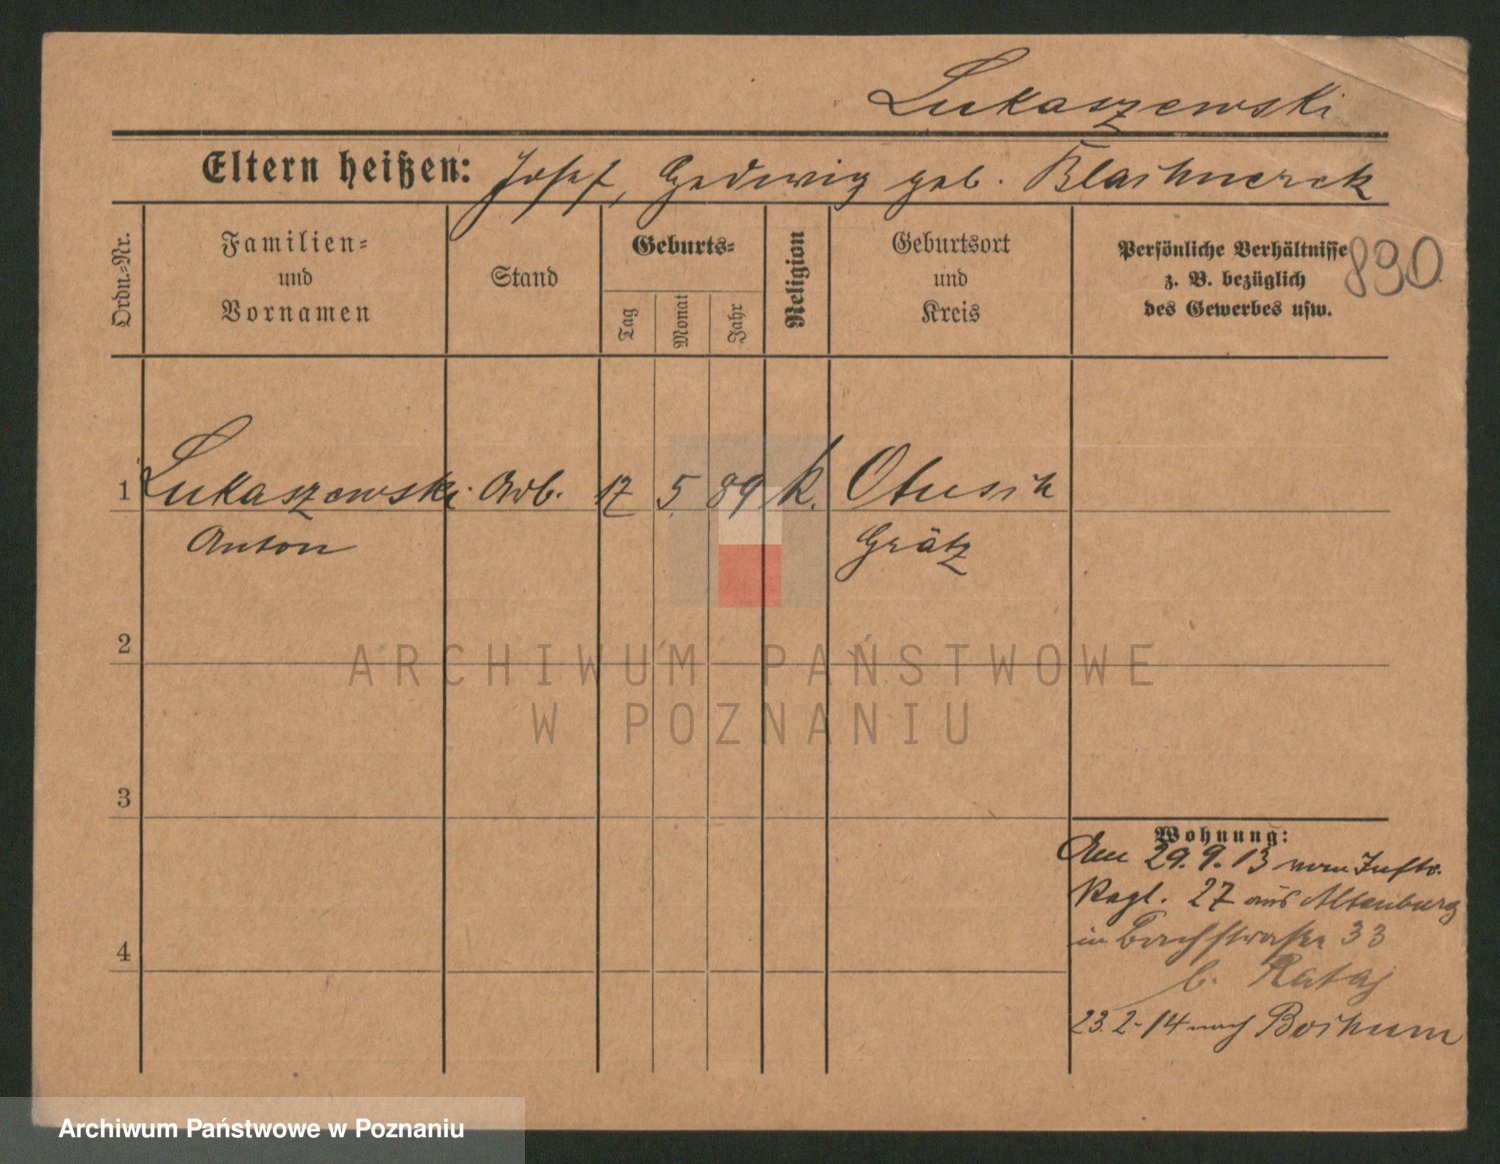 Lukaszewski
Eltern heißen: Josef, Hedwig geb.
Ordn.-Nr.
Familien-
und
Vornamen
Stand
Geburts-
Tag
Monat
Jahr
Religion
Geburtsort
und
Kreis
Persönliche Verhältnisse
z. B. bezüglich
des Gewerbes usw.
890
1 Lukaszewski Arb. 17 5. 89 k. Otusch
Anton Grätz
2
3
4
Wohnung:
Am 29.9.13 vom Inftr.
Regt. 27 aus Altenburg
in Bachstraße 33
b. Rataj
23.2.14 nach Bochum
ARCHIWUM PAŃSTWOWE
W POZNANIU
Archiwum Państwowe w Poznaniu